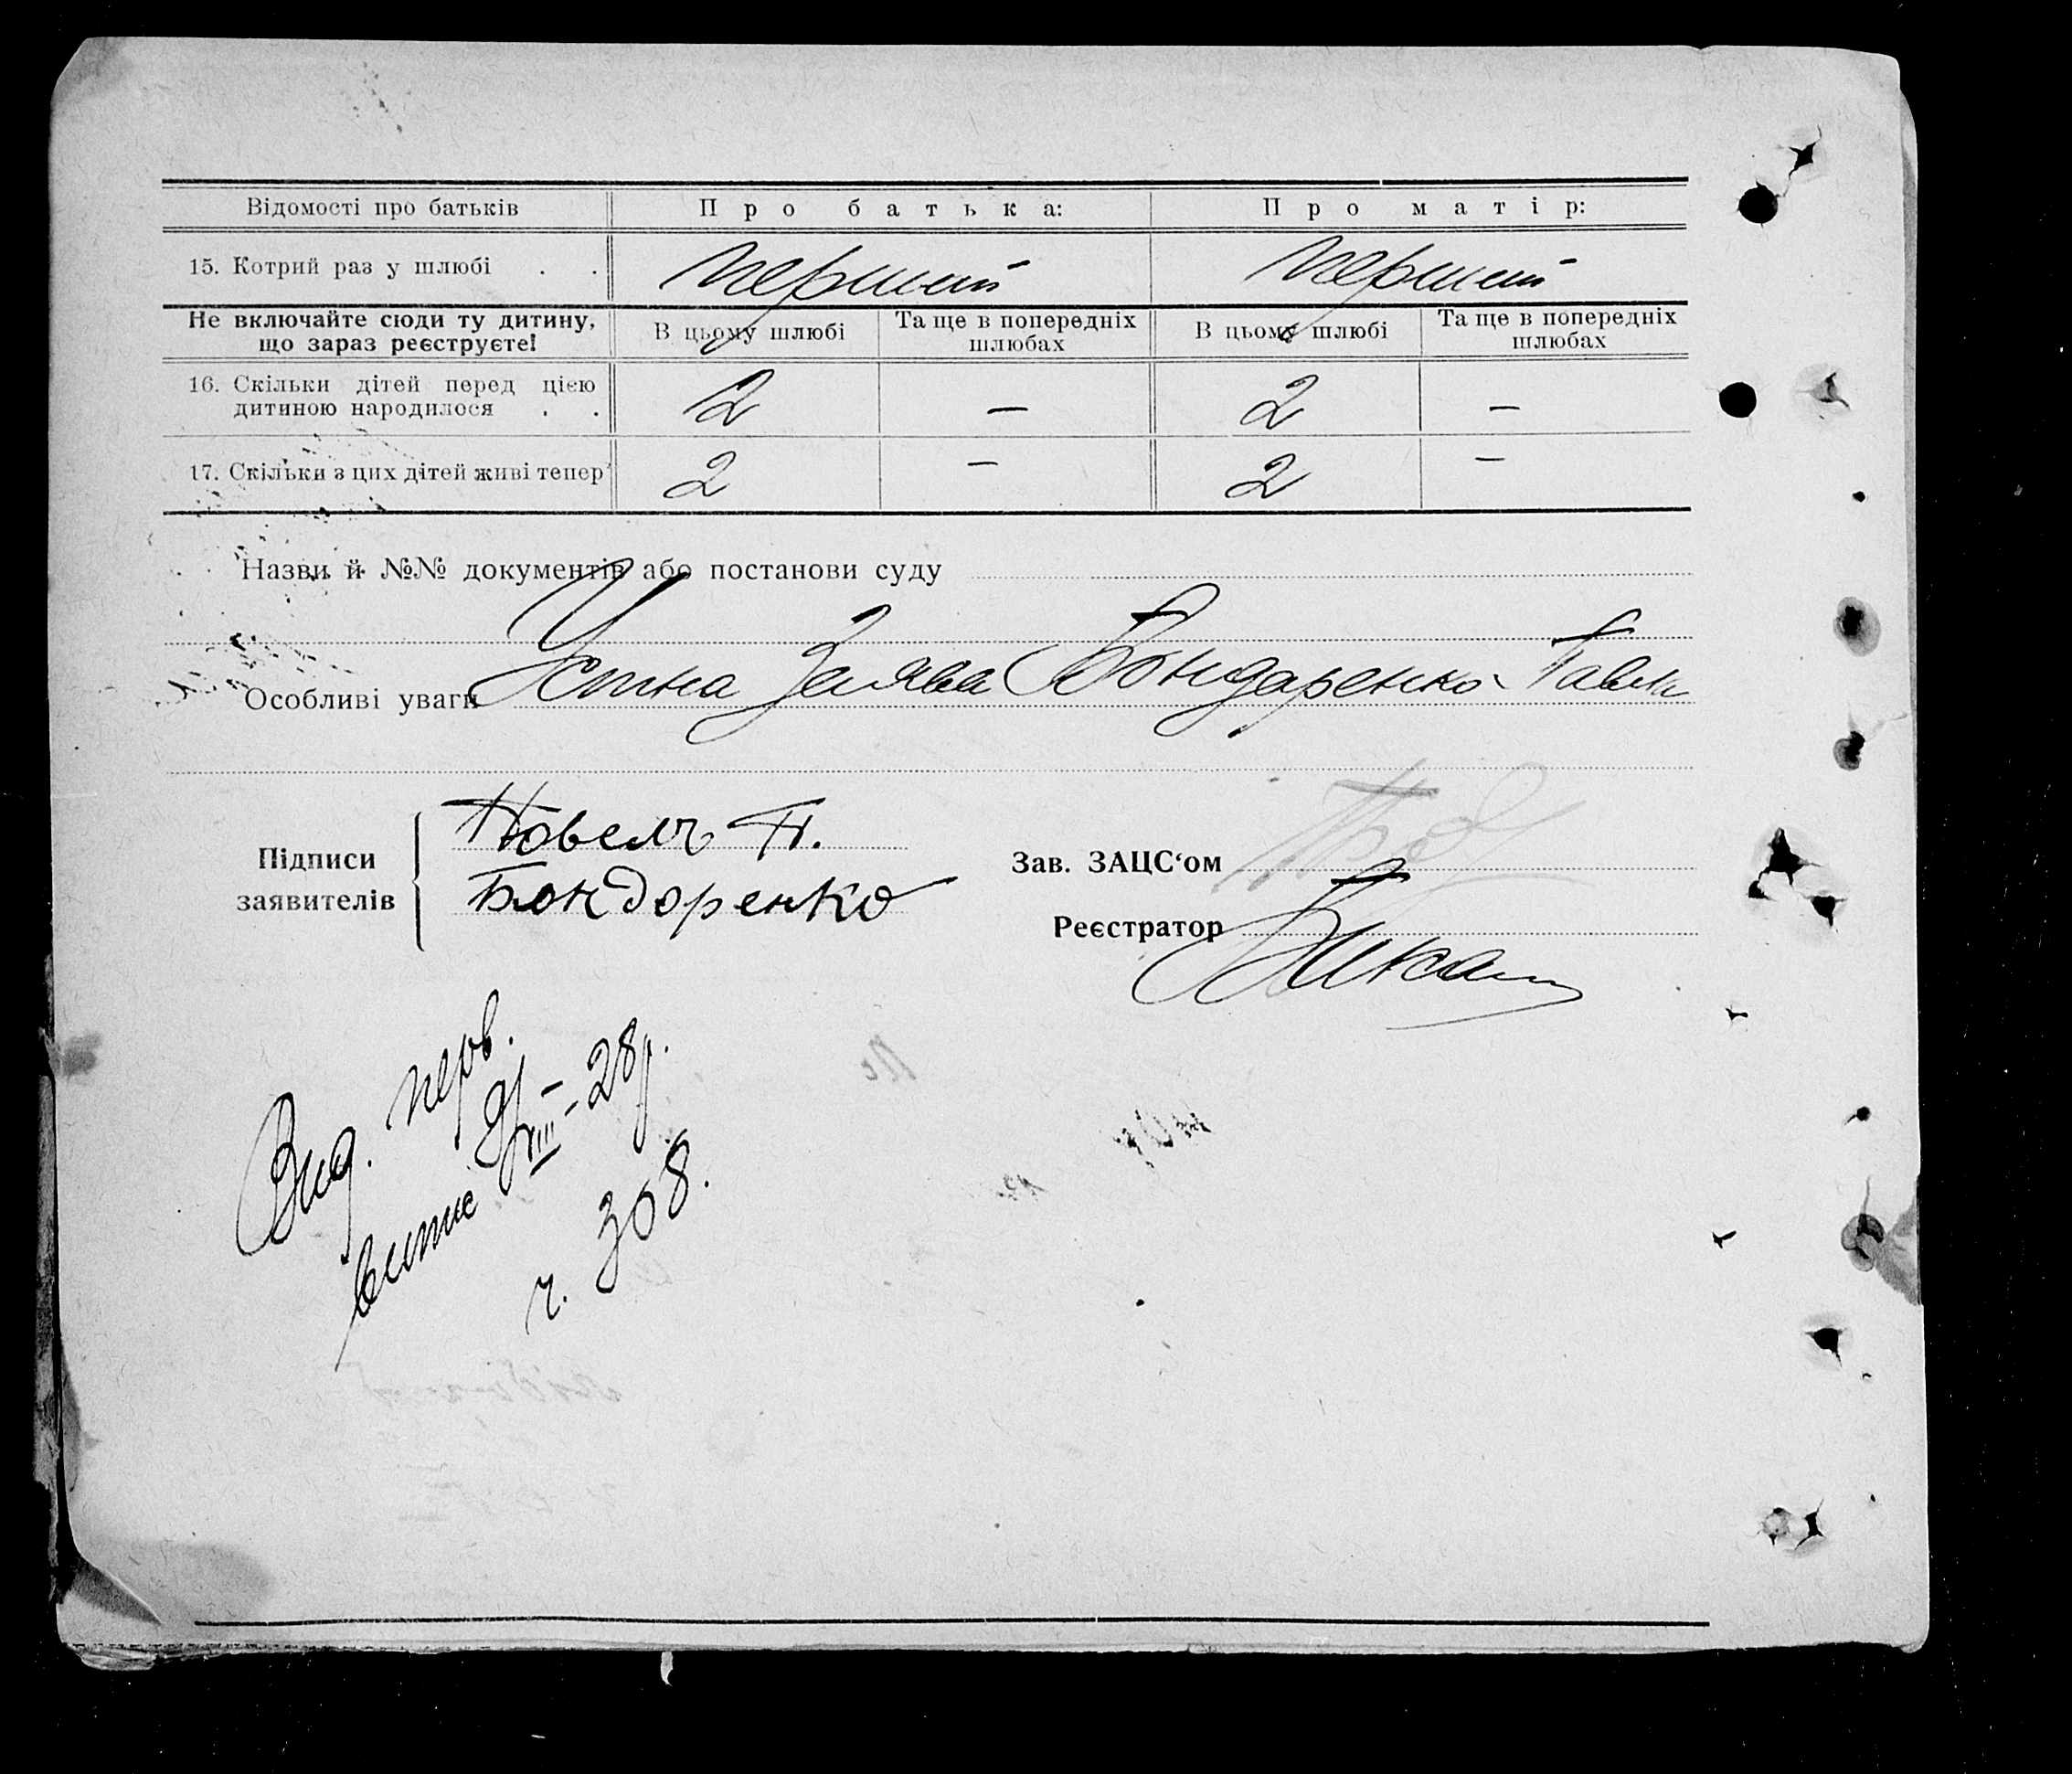 Відомості про батьків Про батька: Про матір:
15. Котрий раз у шлюбі . . первий первий
Не включайте сюди ту дитину, що зараз реєструєте! В цьому шлюбі Та ще в попередніх шлюбах В цьому шлюбі Та ще в попередніх шлюбах
16. Скільки дітей перед цією дитиною народилося . . 2 — 2 —
17. Скільки з цих дітей живі тепер 2 — 2 —
Назви й №№ документів або постанови суду
Особливі уваги Устна Заява Бондаренко Павла
Підписи заявителів
Повелъ П.
Бондоренко
Зав. ЗАЦС‘ом
Реєстратор
Вид. перв.
витяг 9/VIII-28р.
ч. 308.